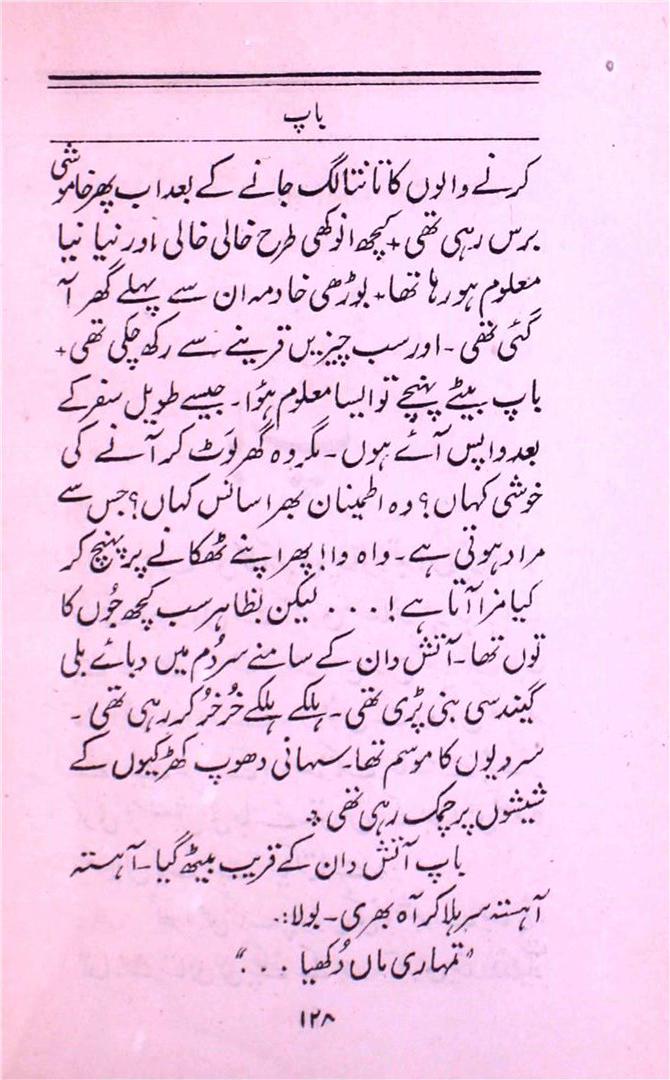 باپ
کرنے والوں کا تانتا لگ جانے کے بعد اب پھر خاموشی
برس رہی تھی + کچھ انوکھی طرح خالی خالی اور نیا نیا
معلوم ہو رہا تھا + بوڑھی خادمہ ان سے پہلے گھر آ
گئی تھی ۔ اور سب چیزیں قرینے سے رکھ چکی تھی +
باپ بیٹے پہنچے تو ایسا معلوم ہؤا ۔ جیسے طویل سفر کے
بعد واپس آئے ہوں ۔ مگر وہ گھر لَوٹ کر آنے کی
خوشی کہاں؟ وہ اطمینان بھرا سانس کہاں؟ جس سے
مراد ہوتی ہے ۔ واہ وا! پھر اپنے ٹھکانے پر پہنچ کر
کیا مزا آتا ہے! . . . لیکن بظاہر سب کچھ جُوں کا
توں تھا ۔ آتش دان کے سامنے سر دُم میں دبائے بلی
گیند سی بنی پڑی تھی ۔ ہلکے ہلکے خُرخُر کر رہی تھی ۔
سردیوں کا موسم تھا ۔ سہانی دھوپ کھڑکیوں کے
شیشوں پر چمک رہی تھی ؞
باپ آتش دان کے قریب بیٹھ گیا ۔ آہستہ
آہستہ سر ہلا کر آہ بھری ۔ بولا :۔
"تمہاری ماں دُکھیا . . ."
۱۲۸